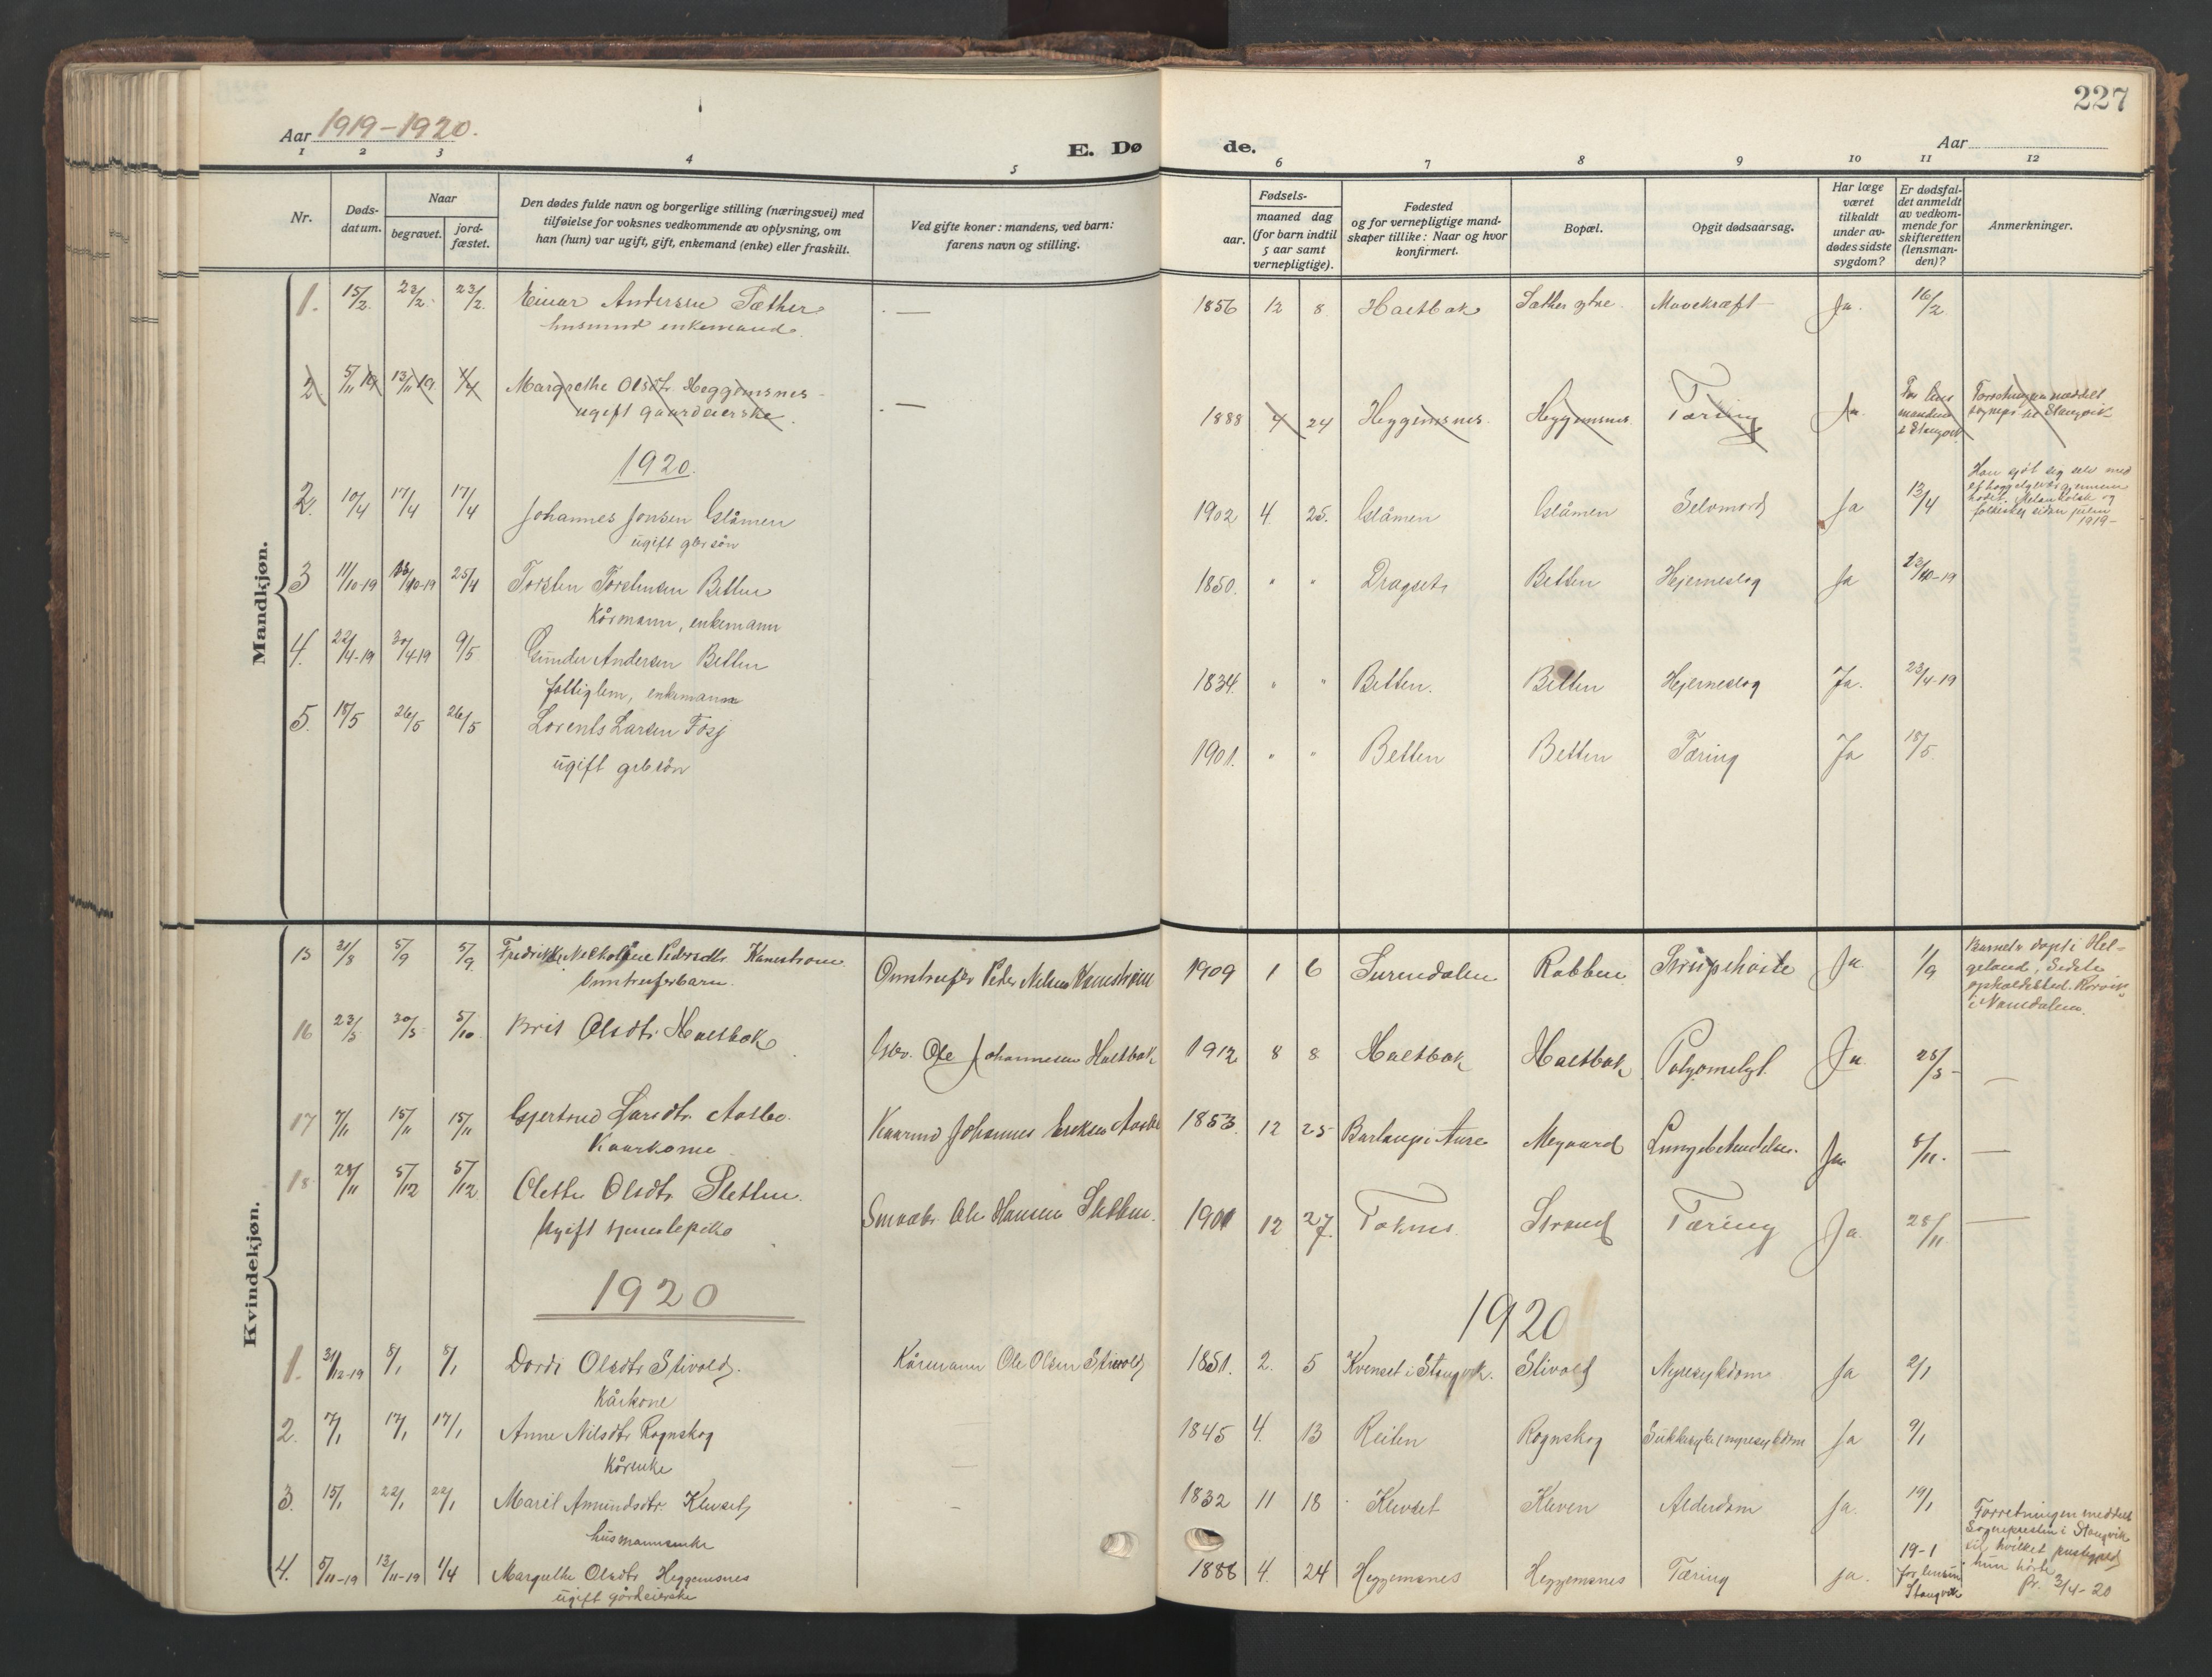 227
Aar 1919-1920.
E. Dø
de.
Aar
1 2 3 4 5 6 7 8 9 10 11 12
Nr.
Døds-
datum.
Naar
begravet.
jord-
fæstet.
Den dødes fulde navn og borgerlige stilling (næringsvei) med
tilføielse for voksnes vedkommende av oplysning, om
han (hun) var ugift, gift, enkemand (enke) eller fraskilt.
Ved gifte koner: mandens, ved barn:
farens navn og stilling.
Fødsels-
aar.
maaned dag
(for barn indtil
5 aar samt
vernepligtige).
Fødested
og for vernepligtige mand-
skaper tillike: Naar og hvor
konfirmert.
Bopæl.
Opgit dødsaarsag.
Har læge
været
tilkaldt
under av-
dødes sidste
sygdom?
Er dødsfal-
det anmeldt
av vedkom-
mende for
skifteretten
(lensman-
den)?
Anmerkninger.
Mandkjøn.
1. 15/2. 23/2. 23/2. Einar Andersen Sæther — 1856 12 8 Haltbak Sæther ytre. Mavekræft Ja. 16/2
husmand enkemand.
2 5/11 19 13/11 19. 1/4 Margrethe Olsdtr. Heggemsnes — 1888 4 24 Heggemsnes Heggemsnes Tæring Ja.
ugift gaardeierske.
1920.
2. 10/4 17/4 17/4 Johannes Jonsen Glåmen 1902 4. 25. Glåmen Glåmen Selvmord Ja 13/4
ugift gbr sön
Han sjöt sig selv med
et haggelgevær gjennem
hodet. Melankolsk og
folkesky siden julen
1919-
3 11/10-19 18/10-19 25/4 Torsten Torstensen Betten 1850. " " Dragset Betten Hjerneslag Ja 23/10-19
Kårmann, enkemann
4. 22/4-19 30/4-19 9/5 Gunder Andersen Betten 1834. " " Betten. Betten Hjerneslag Ja. 23/4-19
fattiglem, enkemann
5. 18/5 26/5 26/5 Lorents Larsen Fosj 1901. " " Betten Betten Tæring Ja 18/5
ugift gbrsön
Kvindekjøn.
15 31/8 5/9 5/9 Fredrikke Nicholine Pedersdtr. Kanestrøm 1909 1 6 Surendalen Rabben Strupehoste Ja 1/9
Omtreiferbarn. Omtreifer Peder Nilsen Kanestrøm
Barnet döpt i Hel-
geland, Sidste
opholdssted. Rorvik
i Namdalen.
16 23/5 30/5 5/10 Brit Olsdtr. Haltbak Gbr. Ole Johannesen Haltbak 1912 8 8 Haltbak Haltbak Ja 25/5 —
17 7/11 15/11 15/11 Gjertrud Larsdtr. Aasbo. Kaarmd Johannes Eriksen Aasbo 1853. 12 25 Barlaup i Aure Megaard Lungebetændelse. Ja 8/11. —
Kaarkone
18 28/11 5/12 5/12. Olette Olsdtr. Sletten. Smaabr. Ole Hansen Sletten. 1901 12 27. Strand Tæring Ja. 28/11 —
Ugift tjenestepike
1920
1920
1. 31/12-19 8/1 8/1 Dordi Olsdtr Stivold. Kårmann Ole Olsen Stivold 1851. 2. 5 Kvenset i Stangvik. Stivold Nyresykdom Ja 2/1
Kårkone
2. 7/1 17/1 17/1 Anne Nilsdtr. Rognskog — 1845 4. 13 Reiten Rognskog Sukkersyke (nyresykdom Ja 9/1
Kårenke
3. 15/1 22/1 22/1 Marit Amundsdtr. Klevset — 1832 11 18 Klevset Kleven Alderdom Ja. 19/1
husmannsenke
4. 5/11-19 13/11-19 1/4 Margrethe Olsdtr Heggemsnes 1888 4. 24 Heggemsnes Heggemsnes Tæring Ja. 19-1
ugift gårdeierske
for lensm i
Stangvik
Forretningen meddelt
Sognepresten i Stangvik
til hvilket prestegjeld
hun hörte
Br. 3/4-20